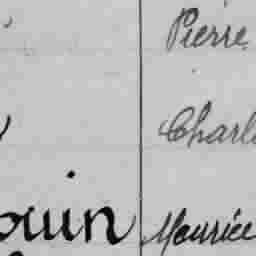 Pierre
Charl
ouin Maurice